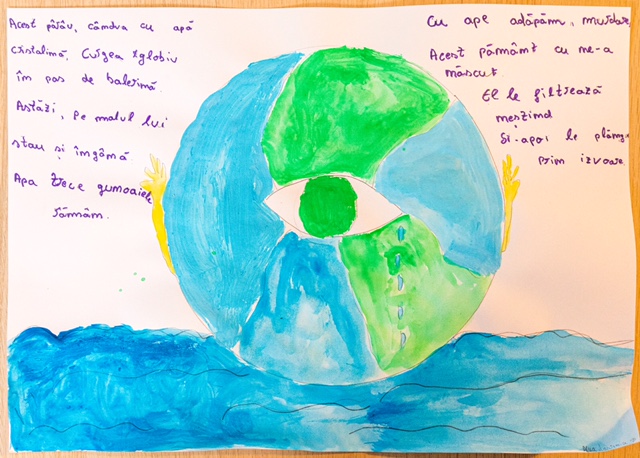 Acest pârâu, cândva cu apă
cristalină, Curgea zglobiu
în pas de balerină.
Astăzi, pe malul lui
stau și îngână
Apa trece gunoaiele
rămân.
Cu ape adăpăm, murdare
Acest pământ cu ne-a
născut
El le filtrează
neștiind
Și-apoi le plâng
prin izvoare